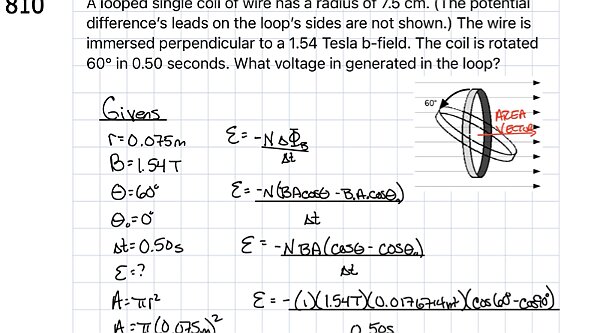 810
A looped single coil of wire has a radius of 7.5 cm. (The potential
difference's leads on the loop's sides are not shown.) The wire is
immersed perpendicular to a 1.54 Tesla b-field. The coil is rotated
60° in 0.50 seconds. What voltage in generated in the loop?
60°
AREA
VECTOR
Givens
r=0.075m
B=1.54T
θ=60°
θ₀=0°
Δt=0.50s
ε=?
A=πr²
A=π(0.075m)²
ε= -NΔΦB
Δt
ε= -N(BAcosθ - B₀A₀cosθ₀)
Δt
ε= -NBA(cosθ - cosθ₀)
Δt
ε= -(1)(1.54T)(0.0176714m²)(cos60°-cos0°)
0.50s